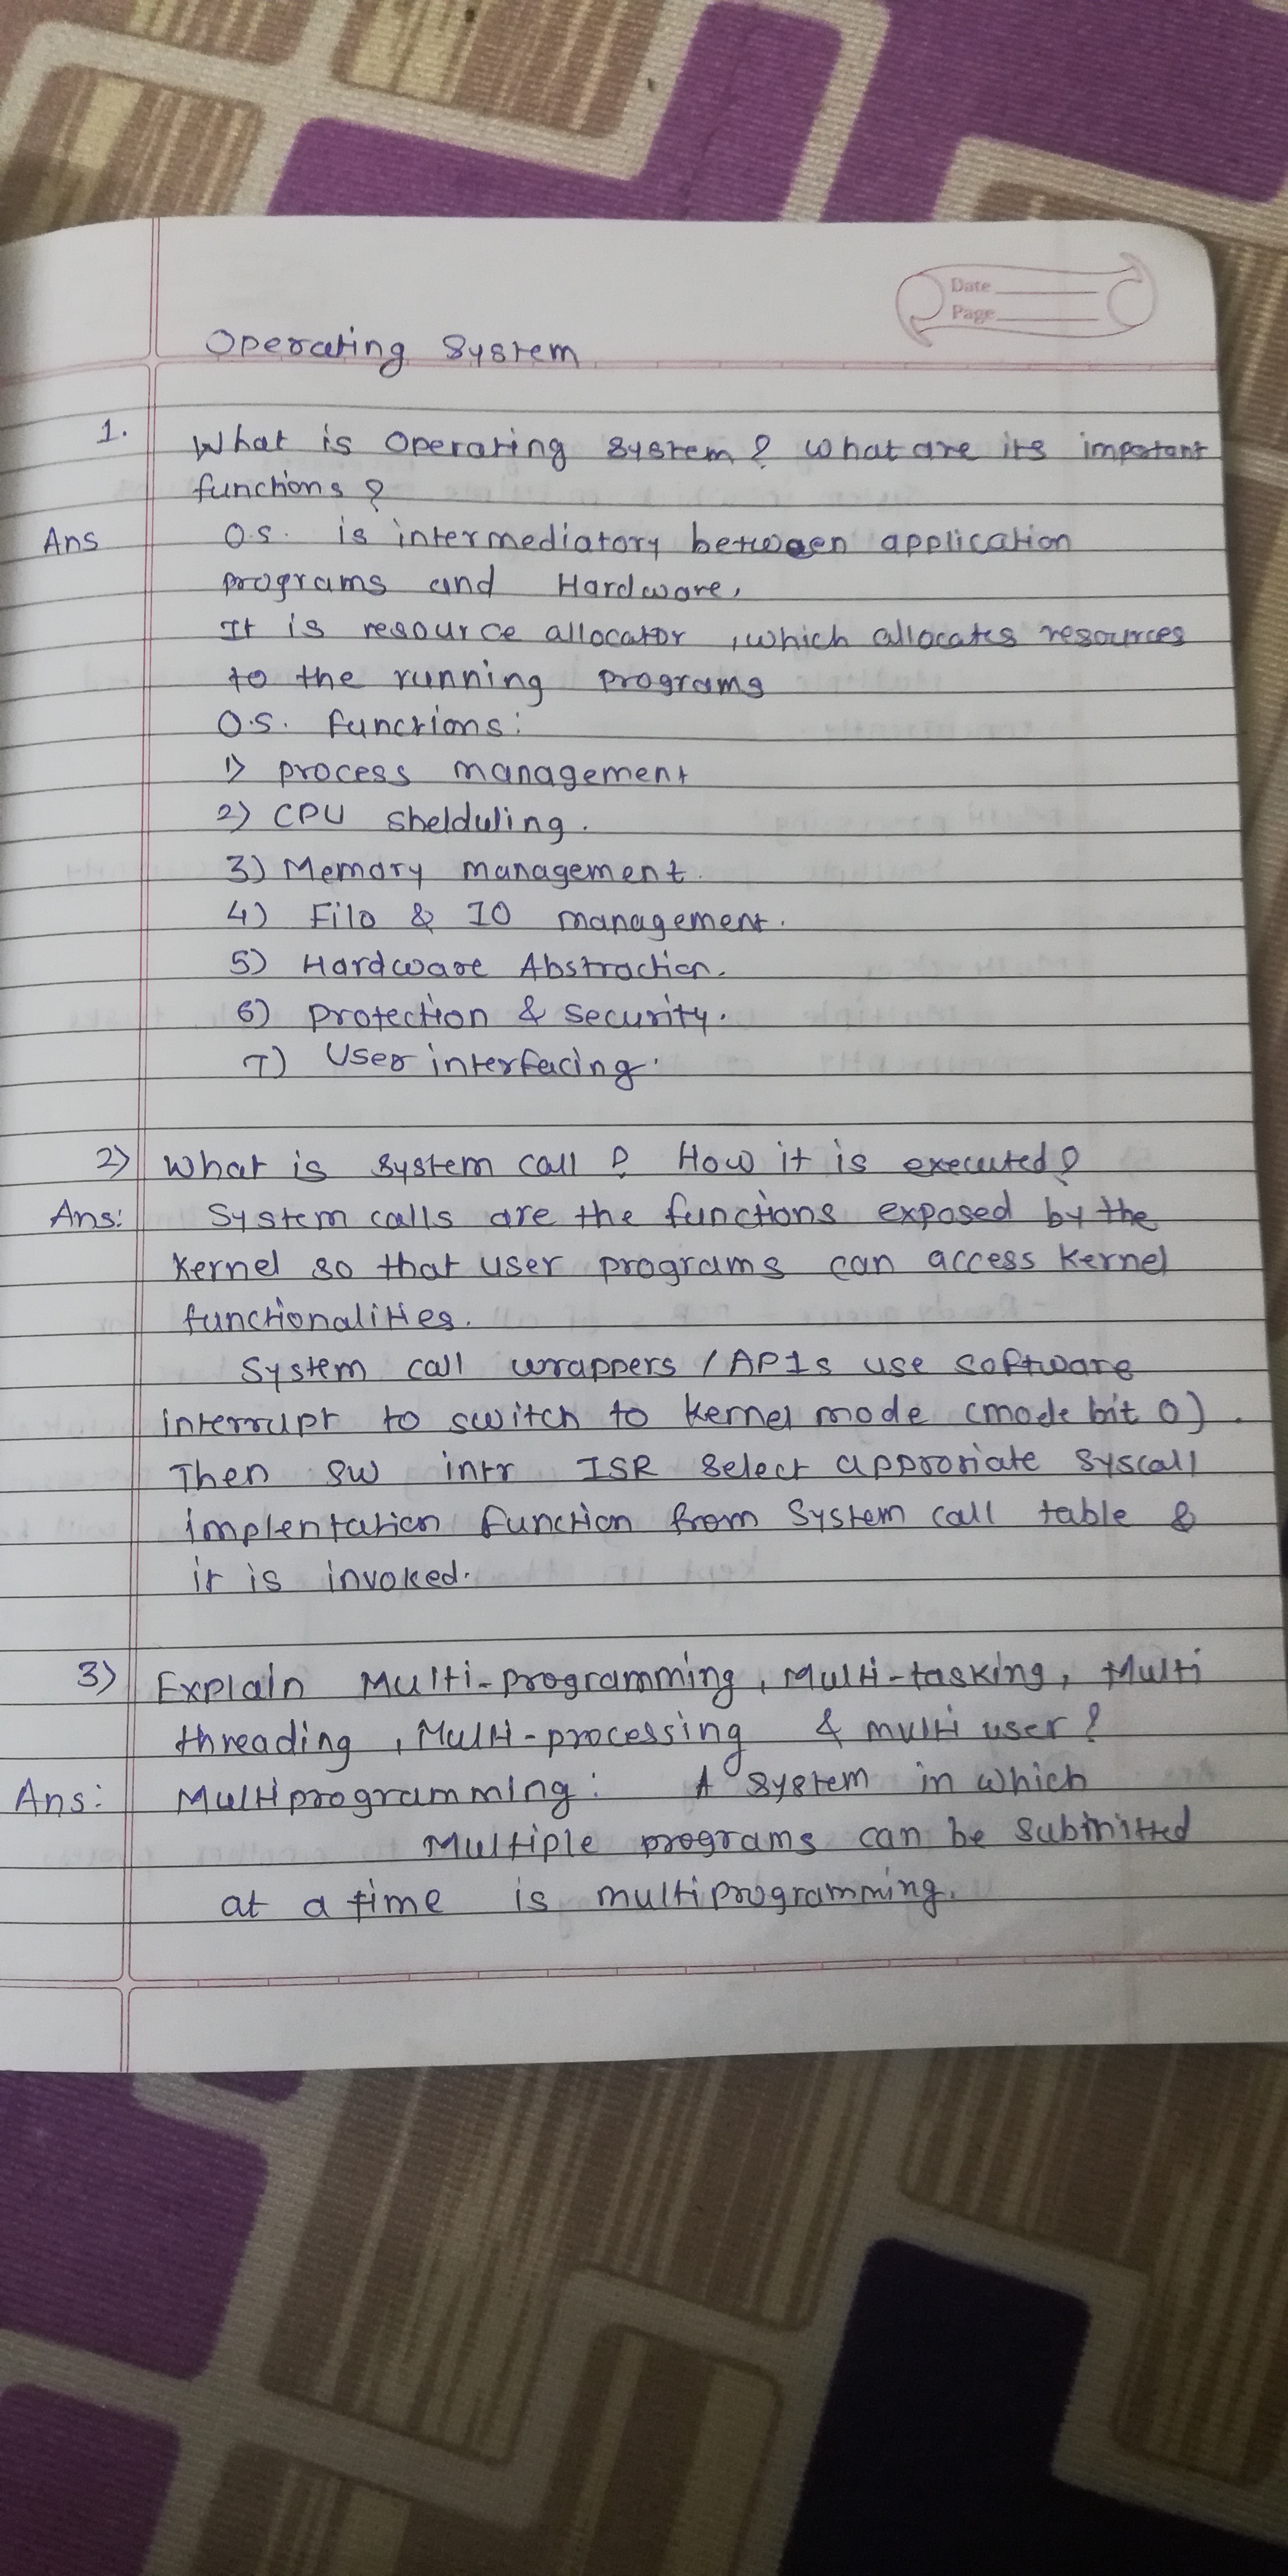 Date
Page
Operating System
1. What is Operating System? What are its impotant
functions?
Ans O.S. is intermediatory between application
programs and Hardware,
It is resource allocator, which allocates resources
to the running programs
O.S. functions:
1) process management
2) CPU shelduling.
3) Memory management.
4) File & IO management.
5) Hardware Abstraction.
6) Protection & Security.
7) User interfacing.
2) What is system call? How it is executed?
Ans: System calls are the functions exposed by the
kernel so that user programs can access kernel
functionalities.
System call wrappers / APIs use software
interrupt to switch to kernel mode (mode bit 0).
Then sw intr ISR select approriate syscall
implentation function from System call table &
it is invoked.
3) Explain Multi-programming, Multi-tasking, Multi
threading, Multi-processing & multi user?
Ans: Multiprogramming: A system in which
Multiple programs can be submitted
at a time is multiprogramming.